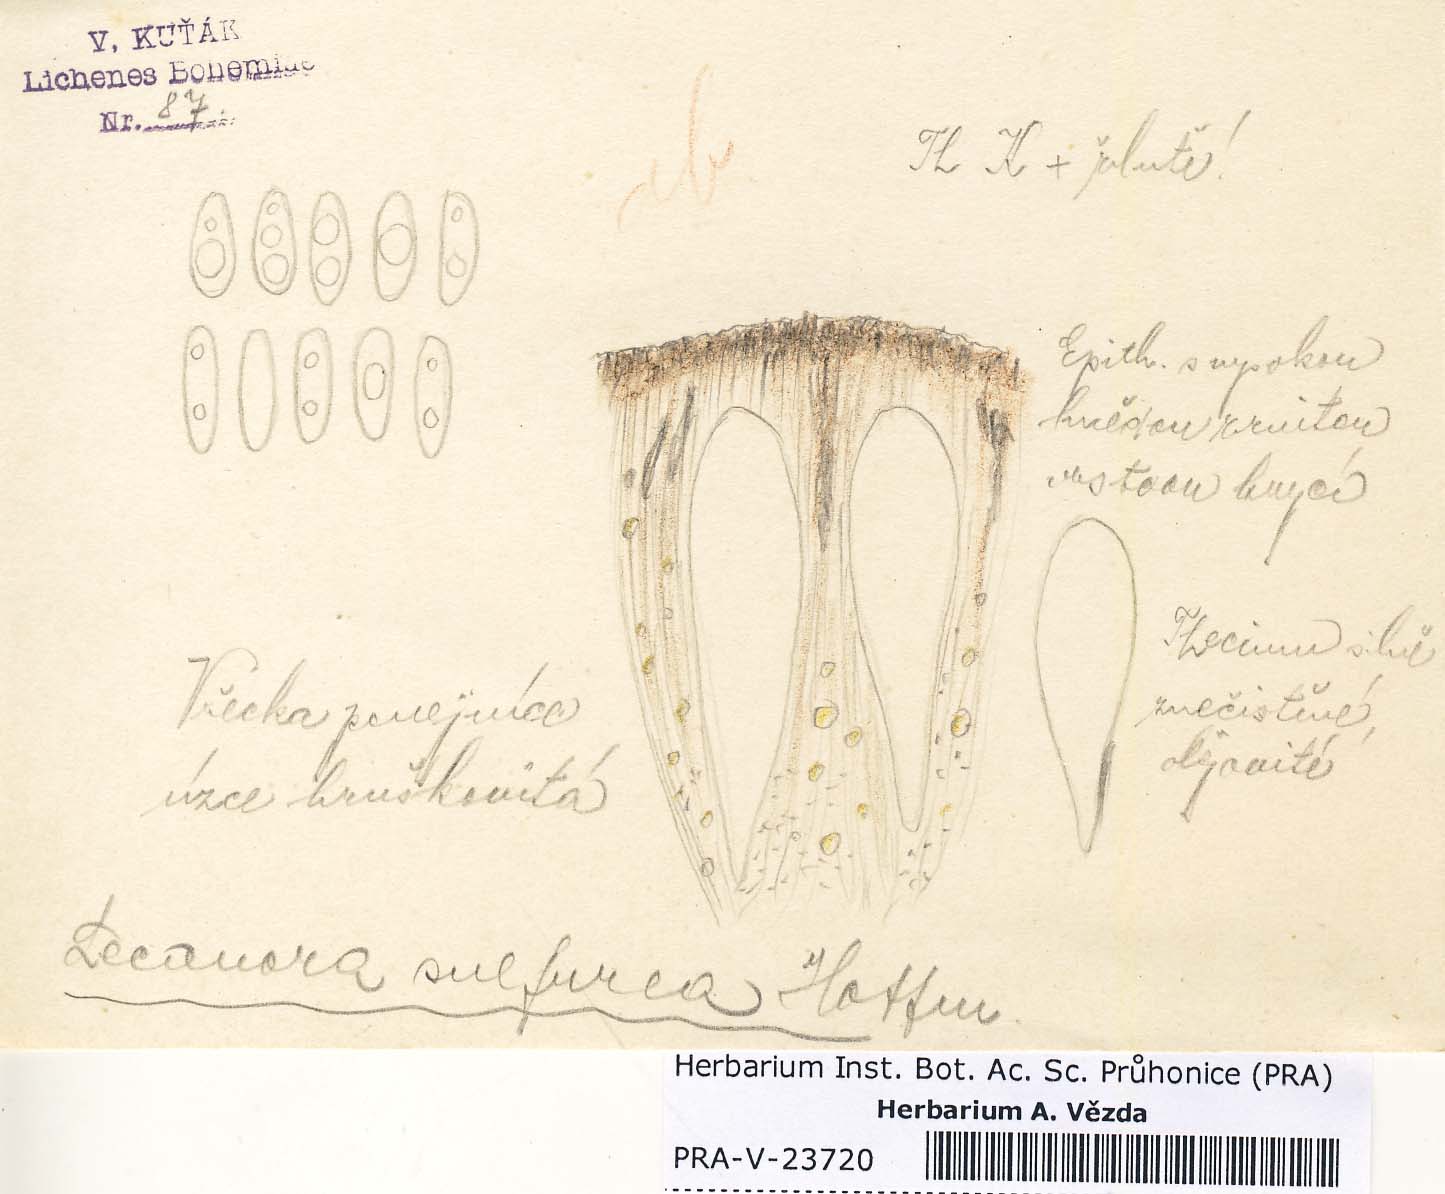 V. KUŤÁK
Lichenes Bohemiae
Nr. 87
Th K + žlutě!
Epith. s vysokou
hnědou zrnitou
vrstvou krycí
Thecium silně
znečistěné,
olejovité
Vřecka ponejvíce
úzce hruškovitá
Lecanora sulfurea Hoffm.
Herbarium Inst. Bot. Ac. Sc. Průhonice (PRA)
Herbarium A. Vězda
PRA-V-23720